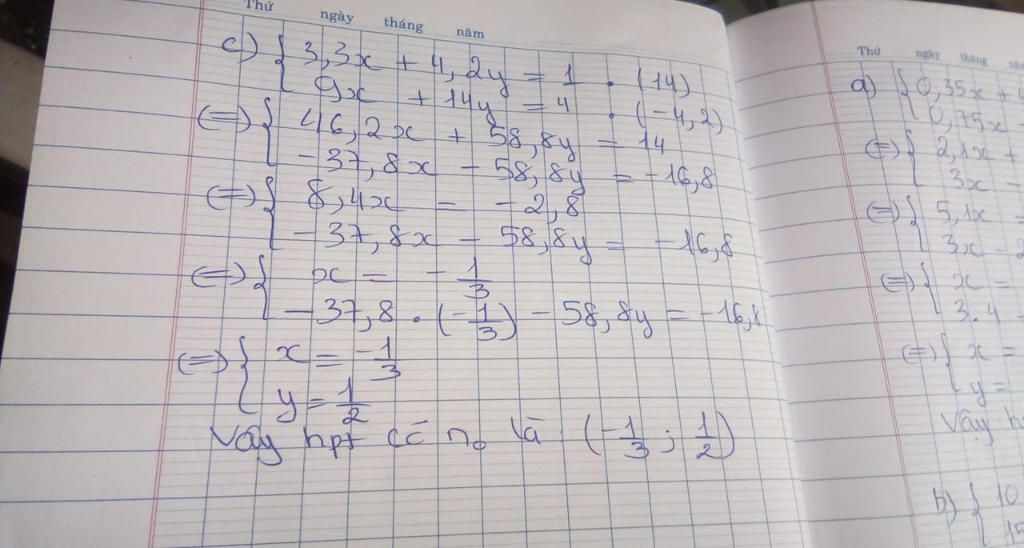 Thứ ngày tháng năm
c) { 3,3x + 4,2y = 1 . (14)
9x + 14y = 4 . (-4,2)
(=) { 46,2x + 58,8y = 14
- 37,8x - 58,8y = -16,8
(=) { 8,4x = - 2,8
- 37,8x - 58,8y = - 16,8
(=) { x = - 1/3
- 37,8 . (- 1/3) - 58,8y = -16,8
(=) { x = - 1/3
y = 1/2
Vậy hpt có n₀ là (- 1/3 ; 1/2)
Thứ ngày tháng
a) { 0,35x +
0,75x -
(=) { 2,1x +
3x -
(=) { 5,1x =
3x - 2
(=) { x =
3.4 -
(=) { x =
y =
Vậy
b) { 10
15